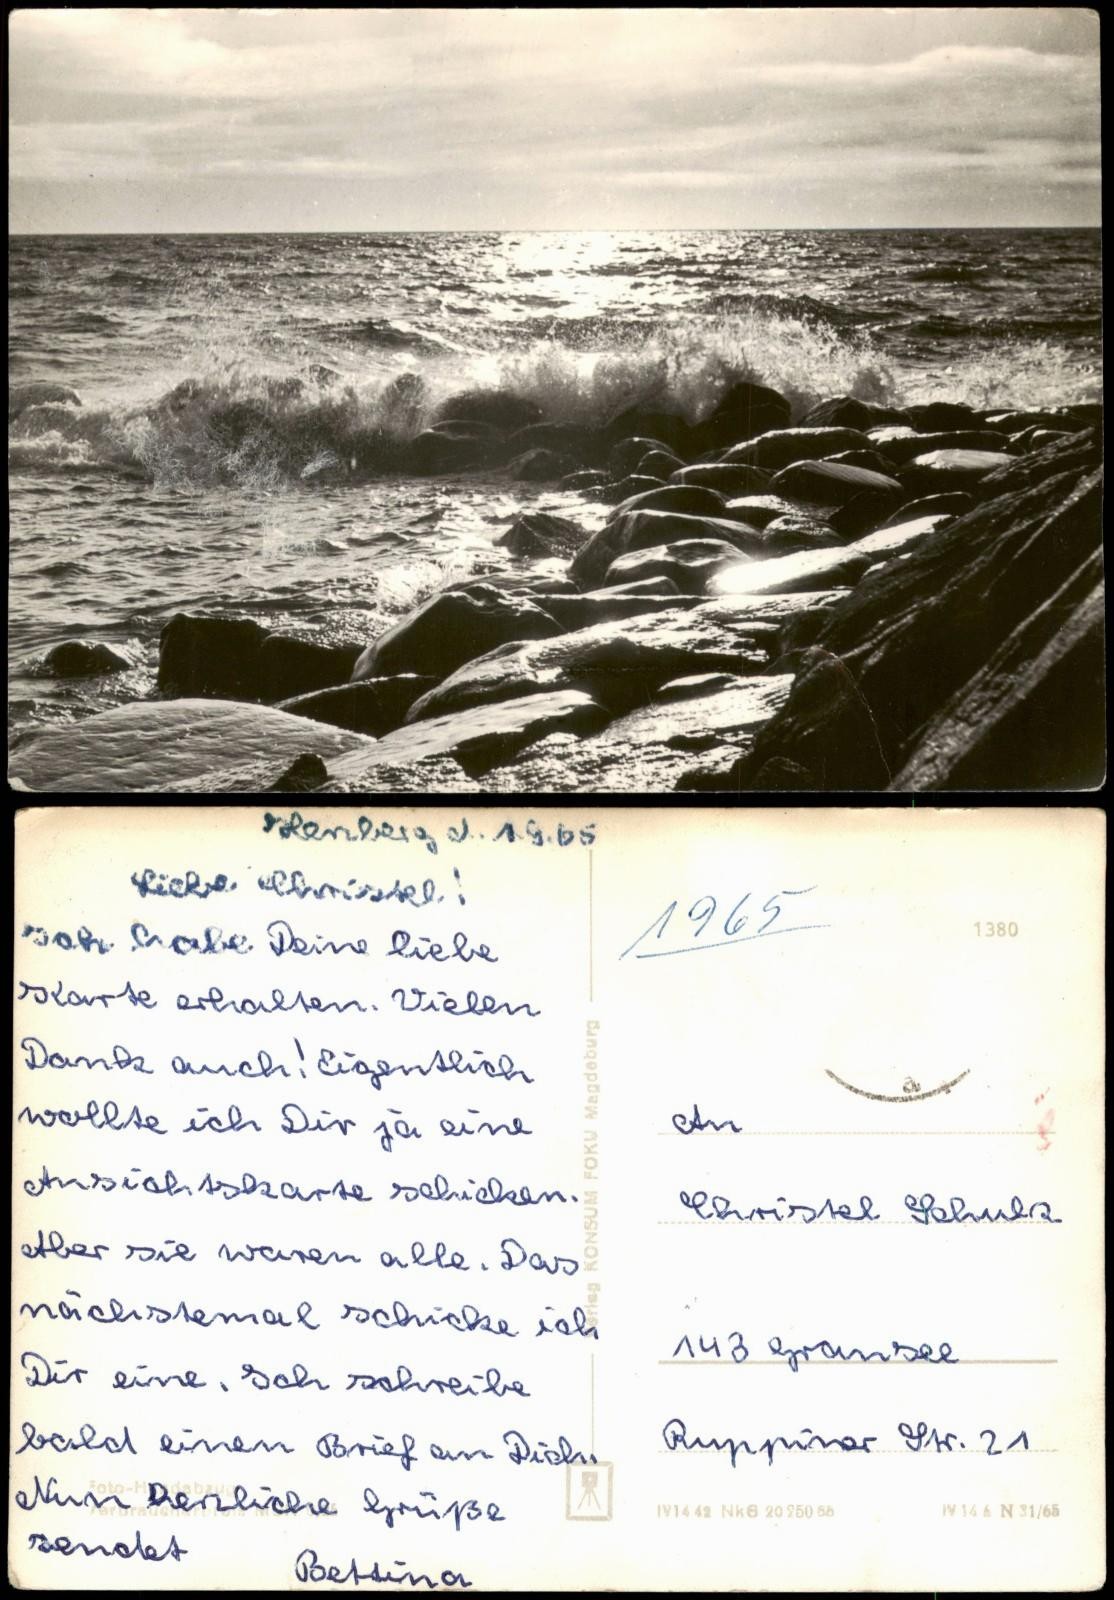 d. 1.9.65
Liebe Christel!
Ich habe Deine liebe
Karte erhalten. Vielen
Dank auch! Eigentlich
wollte ich Dir ja eine
Ansichtskarte schicken.
Aber sie waren alle. Das
nächstemal schicke ich
Dir eine. Ich schreibe
bald einen Brief an Dich.
Nun herzliche Grüße
sendet
Bettina
Foto-Handabzug
KONSUM FOKU Magdeburg
1965
1380
a
An
Christel Schulz
143 Gransee
Ruppiner Str. 21
IV 14 42 Nk6
IV 14 6 N 31/65